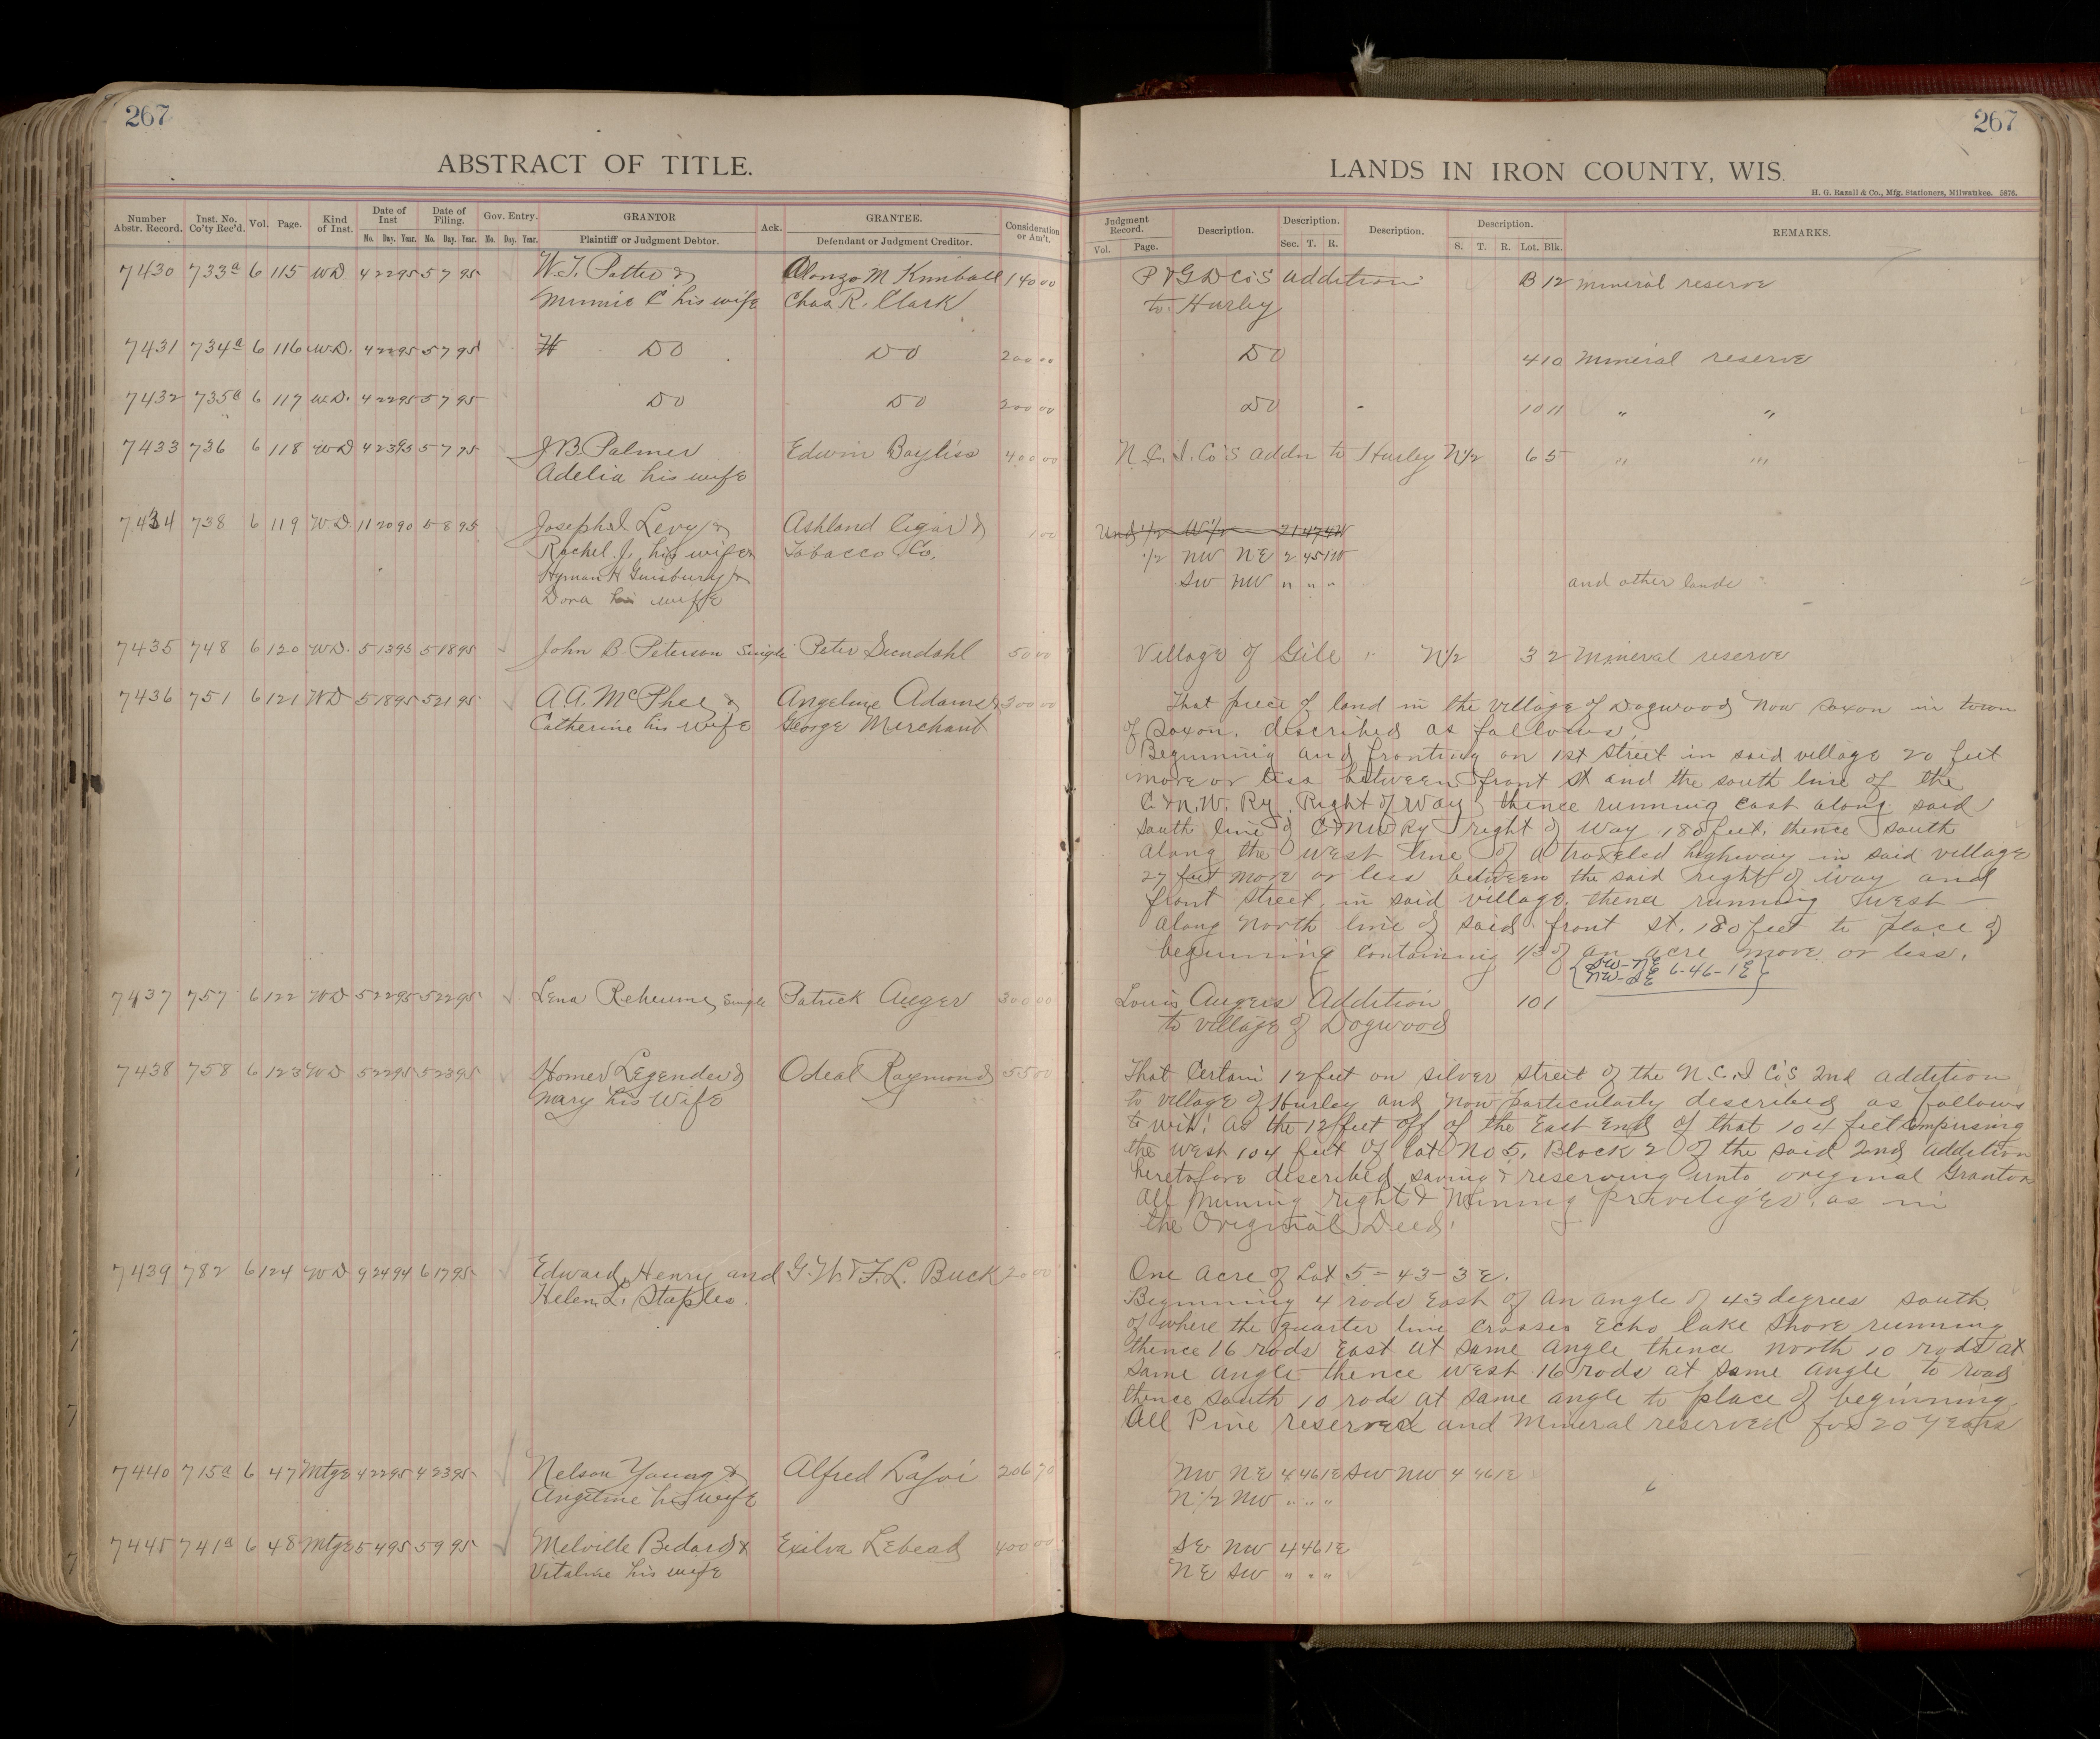 267
267
ABSTRACT OF TITLE.
LANDS IN IRON COUNTY, WIS.
H. G. Razall & Co., Mfg. Stationers, Milwaukee. 5876.
Number Abstr. Record. Inst. No. Co'ty Rec'd. Vol. Page. Kind of Inst. Date of Inst Mo. Day. Year. Date of Filing. Mo. Day. Year. Gov. Entry. Mo. Day. Year. GRANTOR Plaintiff or Judgment Debtor. Ack. GRANTEE. Defendant or Judgment Creditor. Consideration or Am't.
Judgment Record. Vol. Page. Description. Description. Sec. T. R. Description. Description. S. T. R. Lot. Blk. REMARKS.
7430 733a 6 115 WD 4 22 95 5 7 95 W. T. Potter & Alonzo M Kimball 140 00 P & G D Co's addition B 12 mineral reserve
Minnie C his wife Chas R. Clark to Hurley
7431 734a 6 116 WD. 4 22 95 5 7 95 DO DO 200 00 DO 4 10 Mineral reserve
7432 735a 6 117 WD. 4 22 95 5 7 95 DO DO 200 00 DO 10 11 " "
7433 736 6 118 WD 4 23 95 5 7 95 J. B. Palmer Edwin Bayliss 400 00 N. C. I. Co's addn to Hurley N1/2 6 5 " "
Adelia his wife
7434 738 6 119 W.D. 11 20 90 5 8 95 Joseph Levy & Ashland Cigar & 1 00 Und 1/2 W 1/2 21 47 4W
Rachel J., his wife & Tobacco Co. 1/2 NW NE 2 45 1W
Hyman H Ginsburg & SW NW " " " and other lands
Dora his wife
7435 748 6 120 WD. 5 13 95 5 18 95 John B. Peterson Single Peter Sundahl 50 00 Village of Gile N1/2 3 2 Mineral reserve
7436 751 6 121 WD 5 18 95 5 21 95 A. A. McPhee & Angeline Adams & 300 00 That piece of land in the village of Dogwood Now Saxon in town
Catherine his wife George Merchant of Saxon, described as follows,
Beginning and fronting on 1st Street in said village 20 feet
more or less between front St and the south line of the
C & N. W. Ry. Right of Way, thence running east along said
south line of C & NW Ry right of Way 180 feet, thence south
along the west line of a traveled highway in said village
27 feet more or less between the said right of way and
front street, in said village, thence running west
along North line of said front St. 180 feet to place of
beginning containing 1/3 of an acre more or less.
SW-NE
NW-SE 6-46-1E
7437 757 6 122 WD 5 22 95 5 22 95 Lena Reheume Single Patrick Auger 300 00 Louis Augers Addition 10 1
to village of Dogwood
7438 758 6 123 WD 5 22 95 5 23 95 Homer Legender & Odeal Raymond 55 00 That Certain 12 feet on silver street of the N. C. I Co's 2nd addition
Mary his Wife to village of Hurley and now particularly described as follows
to wit: As the 12 feet off of the East End of that 104 feet Comprising
the west 104 feet of Lot No 5, Block 2 of the said 2nd addition
heretofore described, saving & reserving unto original Grantor
All Mining right & Mining privileges, as in
the Original Deed.
7439 782 6 124 WD 9 24 94 6 17 95 Edward, Henry and G. W. & F. L. Buck 20 00 One Acre of Lot 5-43-3E.
Helen L. Staples. Beginning 4 rods East of an angle of 43 degrees south
of where the quarter line crosses Echo Lake Shore running
thence 16 rods East at same Angle thence north 10 rods at
same angle thence west 16 rods at same Angle to road
thence south 10 rods at same angle to place of beginning.
All Pine reserved and Mineral reserved for 20 years
7440 715a 6 47 Mtge 4 22 95 4 23 95 Nelson Young & Alfred LaJoi 206 70 NW NE 4 46 1E SW NW 4 46 1E
Angeline his wife N 1/2 NW " " "
7445 741a 6 48 Mtge 5 4 95 5 9 95 Melville Bedard & Exilva Lebead 400 00 SE NW 4 46 1E
Vitaline his wife NE SW " " "